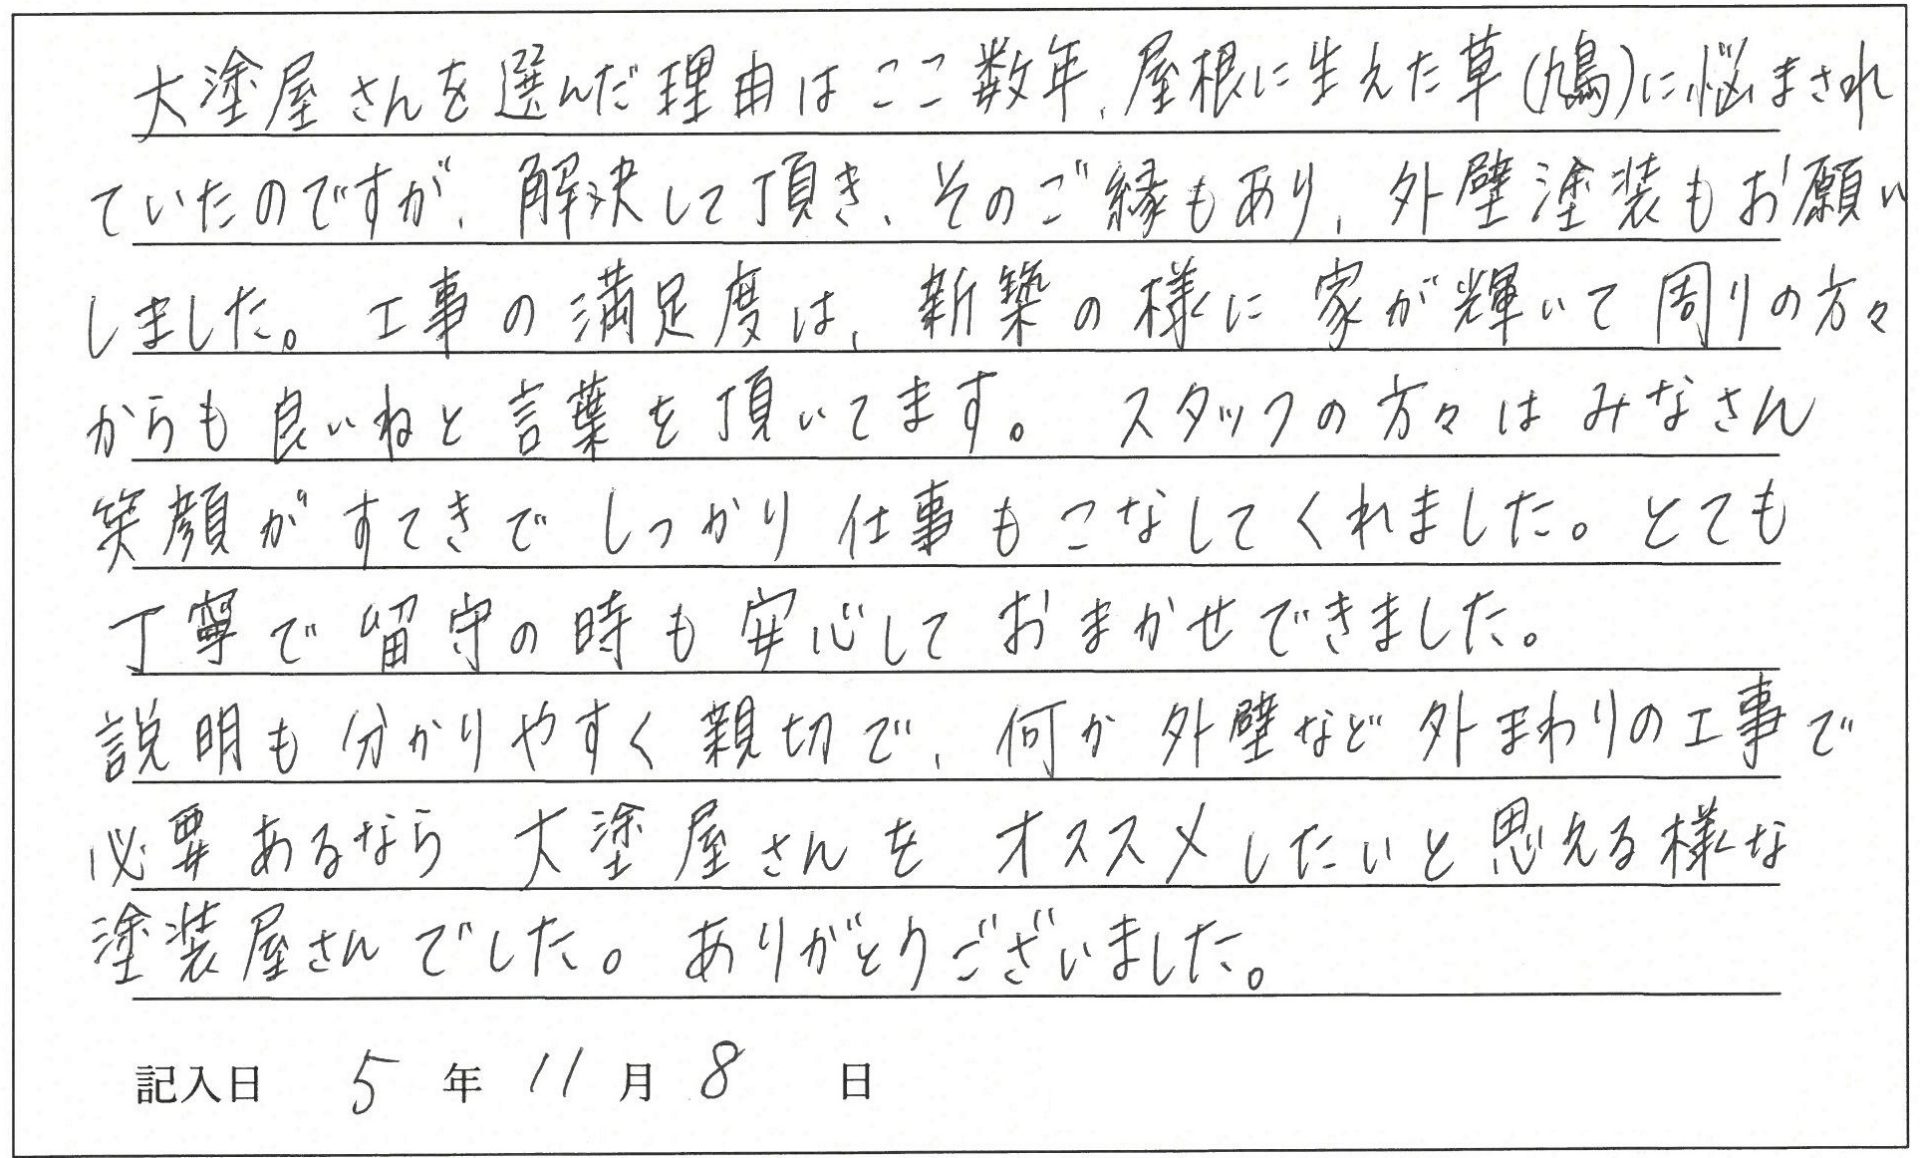 大塗屋さんを選んだ理由はここ数年、屋根に生えた草(鳩)に悩まされ
ていたのですが、解決して頂き、そのご縁もあり、外壁塗装もお願い
しました。工事の満足度は、新築の様に家が輝いて周りの方々
からも良いねと言葉を頂いてます。スタッフの方々はみなさん
笑顔がすてきでしっかり仕事もこなしてくれました。とても
丁寧で留守の時も安心しておまかせできました。
説明も分かりやすく親切で、何か外壁など外まわりの工事で
必要あるなら大塗屋さんをオススメしたいと思える様な
塗装屋さんでした。ありがとうございました。
記入日 5年11月8日